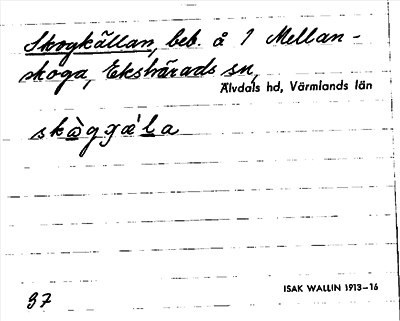 Skogkällan, beb. å 1 Mellan-
skoga, Ekshärads sn,
Älvdals hd, Värmlands län
skòggæ'la
ISAK WALLIN 1913–16
37